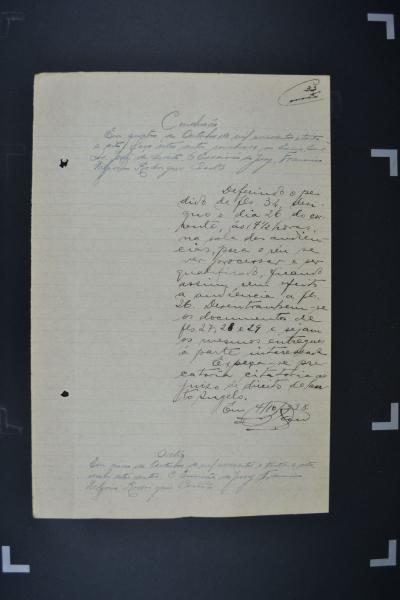 33
Conclusão
Em quatro de Outubro de mil novecentos e trinta
e oito, faço estes autos conclusos ao
Juiz de Direito. O Escrivão do Jury, Francisco
Rodrigues
Deferindo o pe-
dido de fls 32, desi-
gno o dia 26 do cor-
rente, ás 14 1/2 horas,
na sala das audien-
cias, para o réu se
ver processar e ser
qualificado, ficando
assim, sem efeito
a audiência, a fls.
26. Desentranhem-se
os documentos de
fls 27, 28 e 29 e sejam
os mesmos entregues
á parte interessada
Expeça-se pre-
catoria citatoria ao
juizo de direito de San-
to Angelo.
Em, 4/10/938
Data
Em de Outubro de mil novecentos e trinta e oito
estes autos. O Escrivão do Jury Francisco
Rodrigues